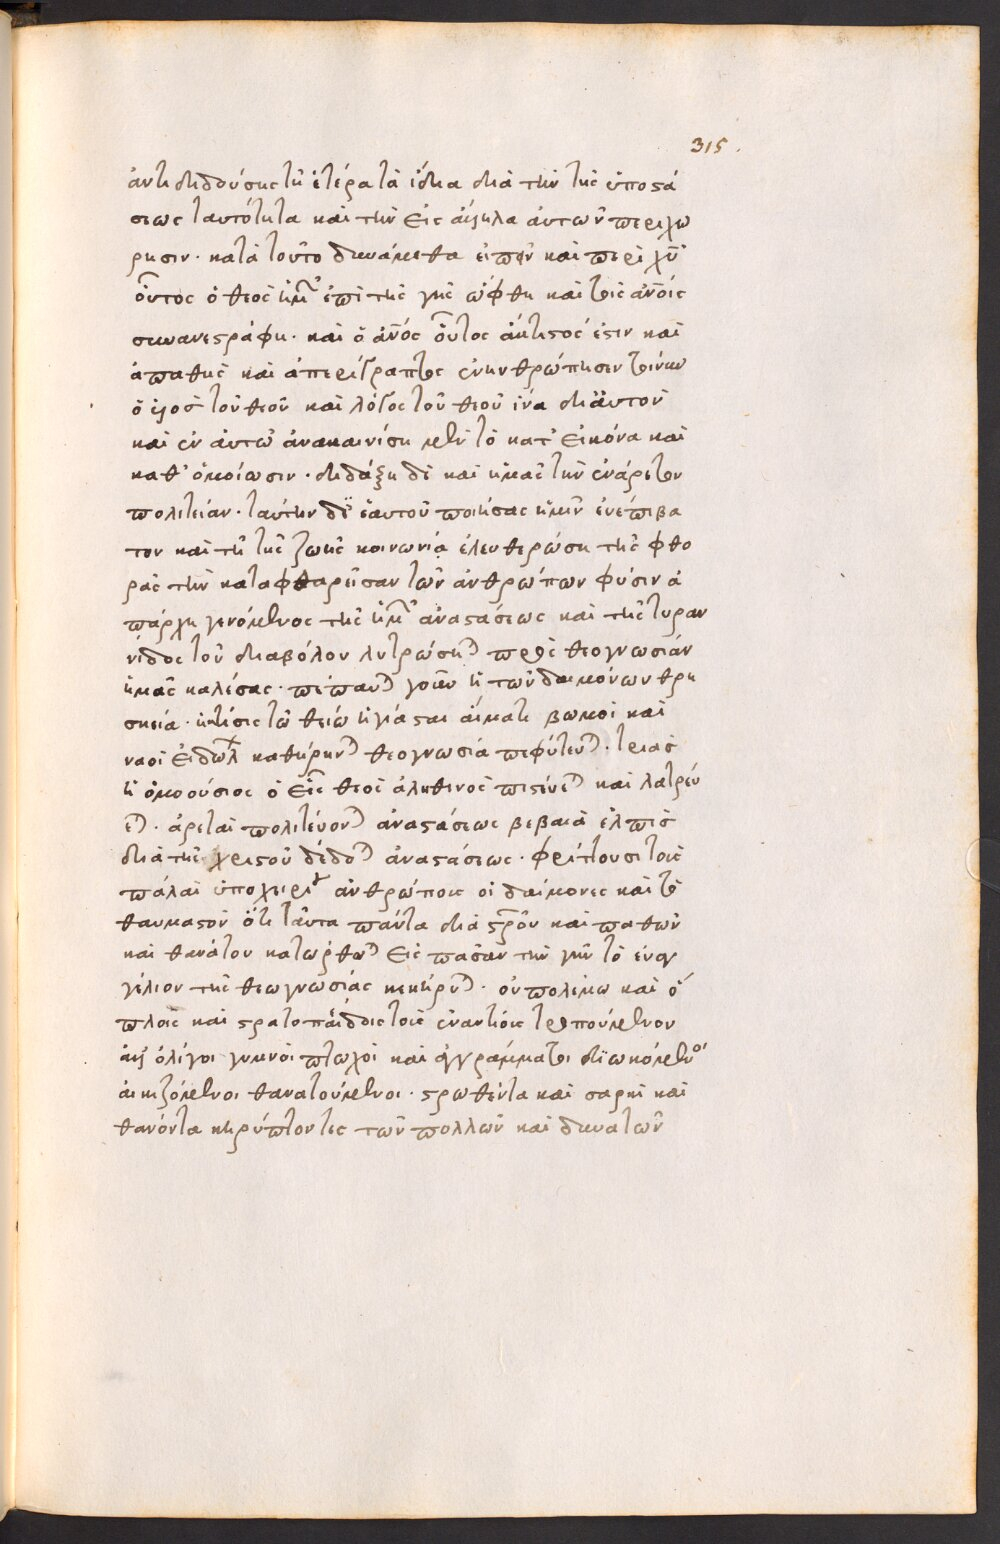 315.
ἀντιδιδούσης τῆ ἑτέρα τὰ ἴδια διὰ τὴν τῆς ὑποστά
σεως ταυτότητα καὶ τὴν εἰς ἄλληλα ἀυτῶν περιχω
ρησιν. κατὰ τοῦτο δυνάμεθα εἰπεῖν καὶ περὶ χυ
οὗτος ὁ θεος ἡμ ἐπὶ τῆς γῆς ὤφθη καὶ τοῖς ἀνοις
συνανεστράφη. καὶ ὁ ἀνος οὗτος ἄκτιστος ἐστιν καὶ
ἀπαθης καὶ ἀπερίγραπτος ἐνηνθρώπησεν τοίνυν
ὁ υἱος τοῦ θεοῦ καὶ λόγος τοῦ θεοῦ ἵνα δι ἀυτοῦ
καὶ ἐν ἀυτῶ ἀνακαινίση μεν τὸ κατ' εἰκόνα καὶ
καθ' ὁμοίωσιν. διδάξη δὲ καὶ ἡμας τὴν ἐνάρετον
πολιτείαν. ταύτην δι ἑαυτοῦ ποιήσας ἡμῖν ἐυέπιβα
τον καὶ τῆ τῆς ζωῆς κοινωνία ἐλευθερώση τῆς φθο
ρᾶς τὴν καταφθαρεῖσαν τῶν ἀνθρώπων φύσιν ἀ
παρχη γενόμενος τῆς ἡμ ἀναστάσεως καὶ τῆς τυραν
νίδος τοῦ διαβόλου λυτρώση πρὸς θεογνωσίαν
ἡμᾶς καλέσας. πέπαυ γοῦν ἡ τῶν δαιμόνων θρη
σκεία. ἡ κτίσις τῶ θείω ἡγίασται αἵματι βωμοὶ καὶ
ναοὶ εἰδωλ καθήρην θεογνωσία πεφύτευ. τριὰς
ἡ ὁμοούσιος ὁ εἷς θεος ἀληθινος πιστεύε καὶ λατρέυ
ε. ἀρεταὶ πολιτέυον ἀναστάσεως βεβαιὰ ἐλπὶς
διὰ τῆς χριστοῦ δέδο ἀναστάσεως. φρίττουσι τοῖς
πάλαι ὑποχειρι ἀνθρώποις οἱ δαίμονες καὶ τὸ
θαυμαστὸν ὅτι ταῦτα πάντα διὰ στροῦ καὶ παθῶν
καὶ θανάτου κατωρθω εἰς πᾶσαν τὴν γῆν τὸ ἐυαγ
γέλιον τῆς θεωγνωσίας κεκήρυ. οὐ πολέμω καὶ ὅ
πλοις καὶ στρατοπαίδδοις τοῖς ἐναντίοις τροπούμενον
ἀλλ ὀλίγοι γυμνοὶ πτωχοὶ καὶ ἀγράμματοι διωκόμενοι
ἀικιζόμενοι θανατούμενοι. στρωθέντα καὶ σαρκὶ καὶ
θανόντα κηρύττοντες τῶν πολλῶν καὶ δυνατῶν